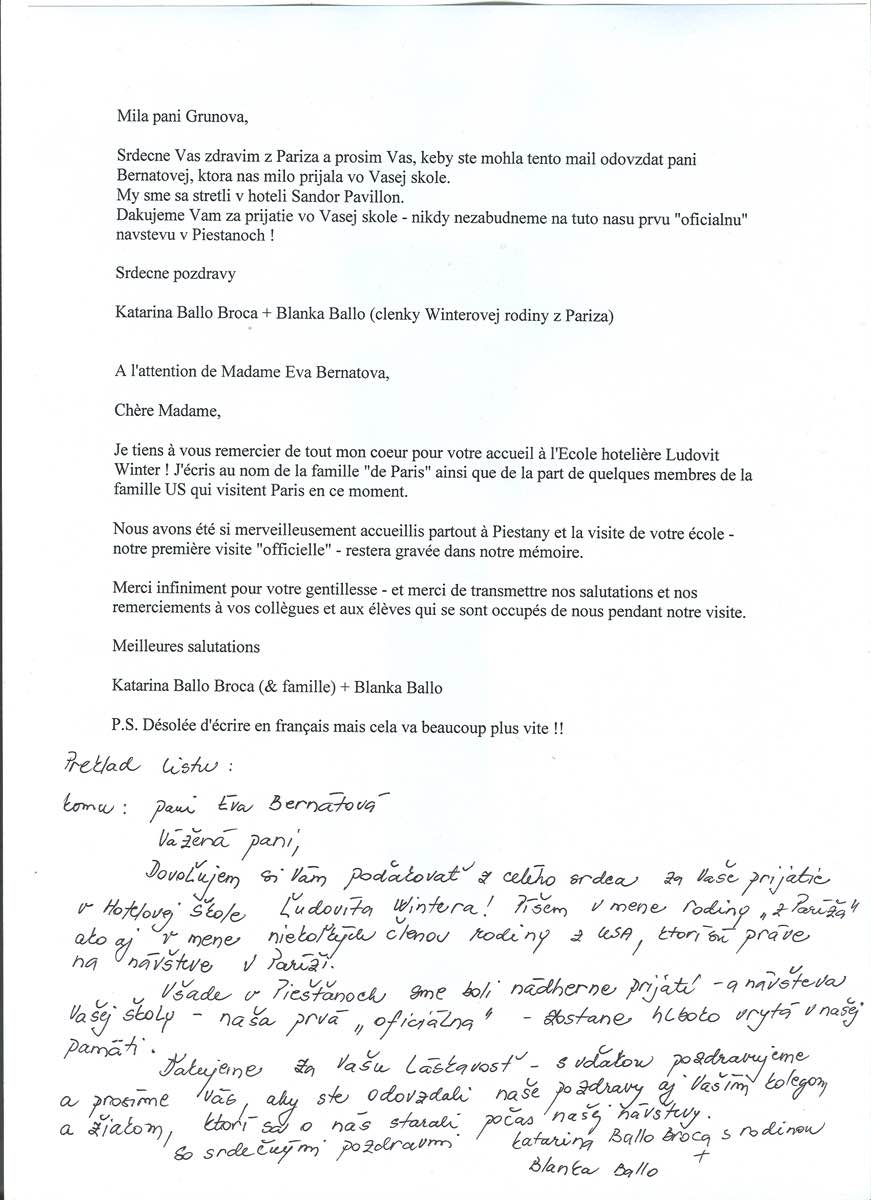 Mila pani Grunova,
Srdecne Vas zdravim z Pariza a prosim Vas, keby ste mohla tento mail odovzdat pani
Bernatovej, ktora nas milo prijala vo Vasej skole.
My sme sa stretli v hoteli Sandor Pavillon.
Dakujeme Vam za prijatie vo Vasej skole - nikdy nezabudneme na tuto nasu prvu "oficialnu"
navstevu v Piestanoch !
Srdecne pozdravy
Katarina Ballo Broca + Blanka Ballo (clenky Winterovej rodiny z Pariza)
A l'attention de Madame Eva Bernatova,
Chère Madame,
Je tiens à vous remercier de tout mon coeur pour votre accueil à l'Ecole hotelière Ludovit
Winter ! J'écris au nom de la famille "de Paris" ainsi que de la part de quelques membres de la
famille US qui visitent Paris en ce moment.
Nous avons été si merveilleusement accueillis partout à Piestany et la visite de votre école -
notre première visite "officielle" - restera gravée dans notre mémoire.
Merci infiniment pour votre gentillesse - et merci de transmettre nos salutations et nos
remerciements à vos collègues et aux élèves qui se sont occupés de nous pendant notre visite.
Meilleures salutations
Katarina Ballo Broca (& famille) + Blanka Ballo
P.S. Désolée d'écrire en français mais cela va beaucoup plus vite !!
Preklad listu :
komu : pani Eva Bernátová
Vážená pani,
Dovoľujem si Vám poďakovať z celého srdca za Vaše prijatie
v Hotelovej škole Ľudovíta Wintera! Píšem v mene rodiny „z Paríža"
ako aj v mene niekoľkých členov rodiny z USA, ktorí sú práve
na návšteve v Paríži.
Všade v Piešťanoch sme boli nádherne prijatí - a návšteva
Vašej školy - naša prvá „oficiálna" - zostane hlboko vrytá v našej
pamäti.
Ďakujeme za Vašu láskavosť - s vďakou pozdravujeme
a prosíme Vás, aby ste odovzdali naše pozdravy aj Vašim kolegom
a žiakom, ktorí sa o nás starali počas našej návštevy.
So srdečnými pozdravmi Katarina Ballo Broca s rodinou
+
Blanka Ballo